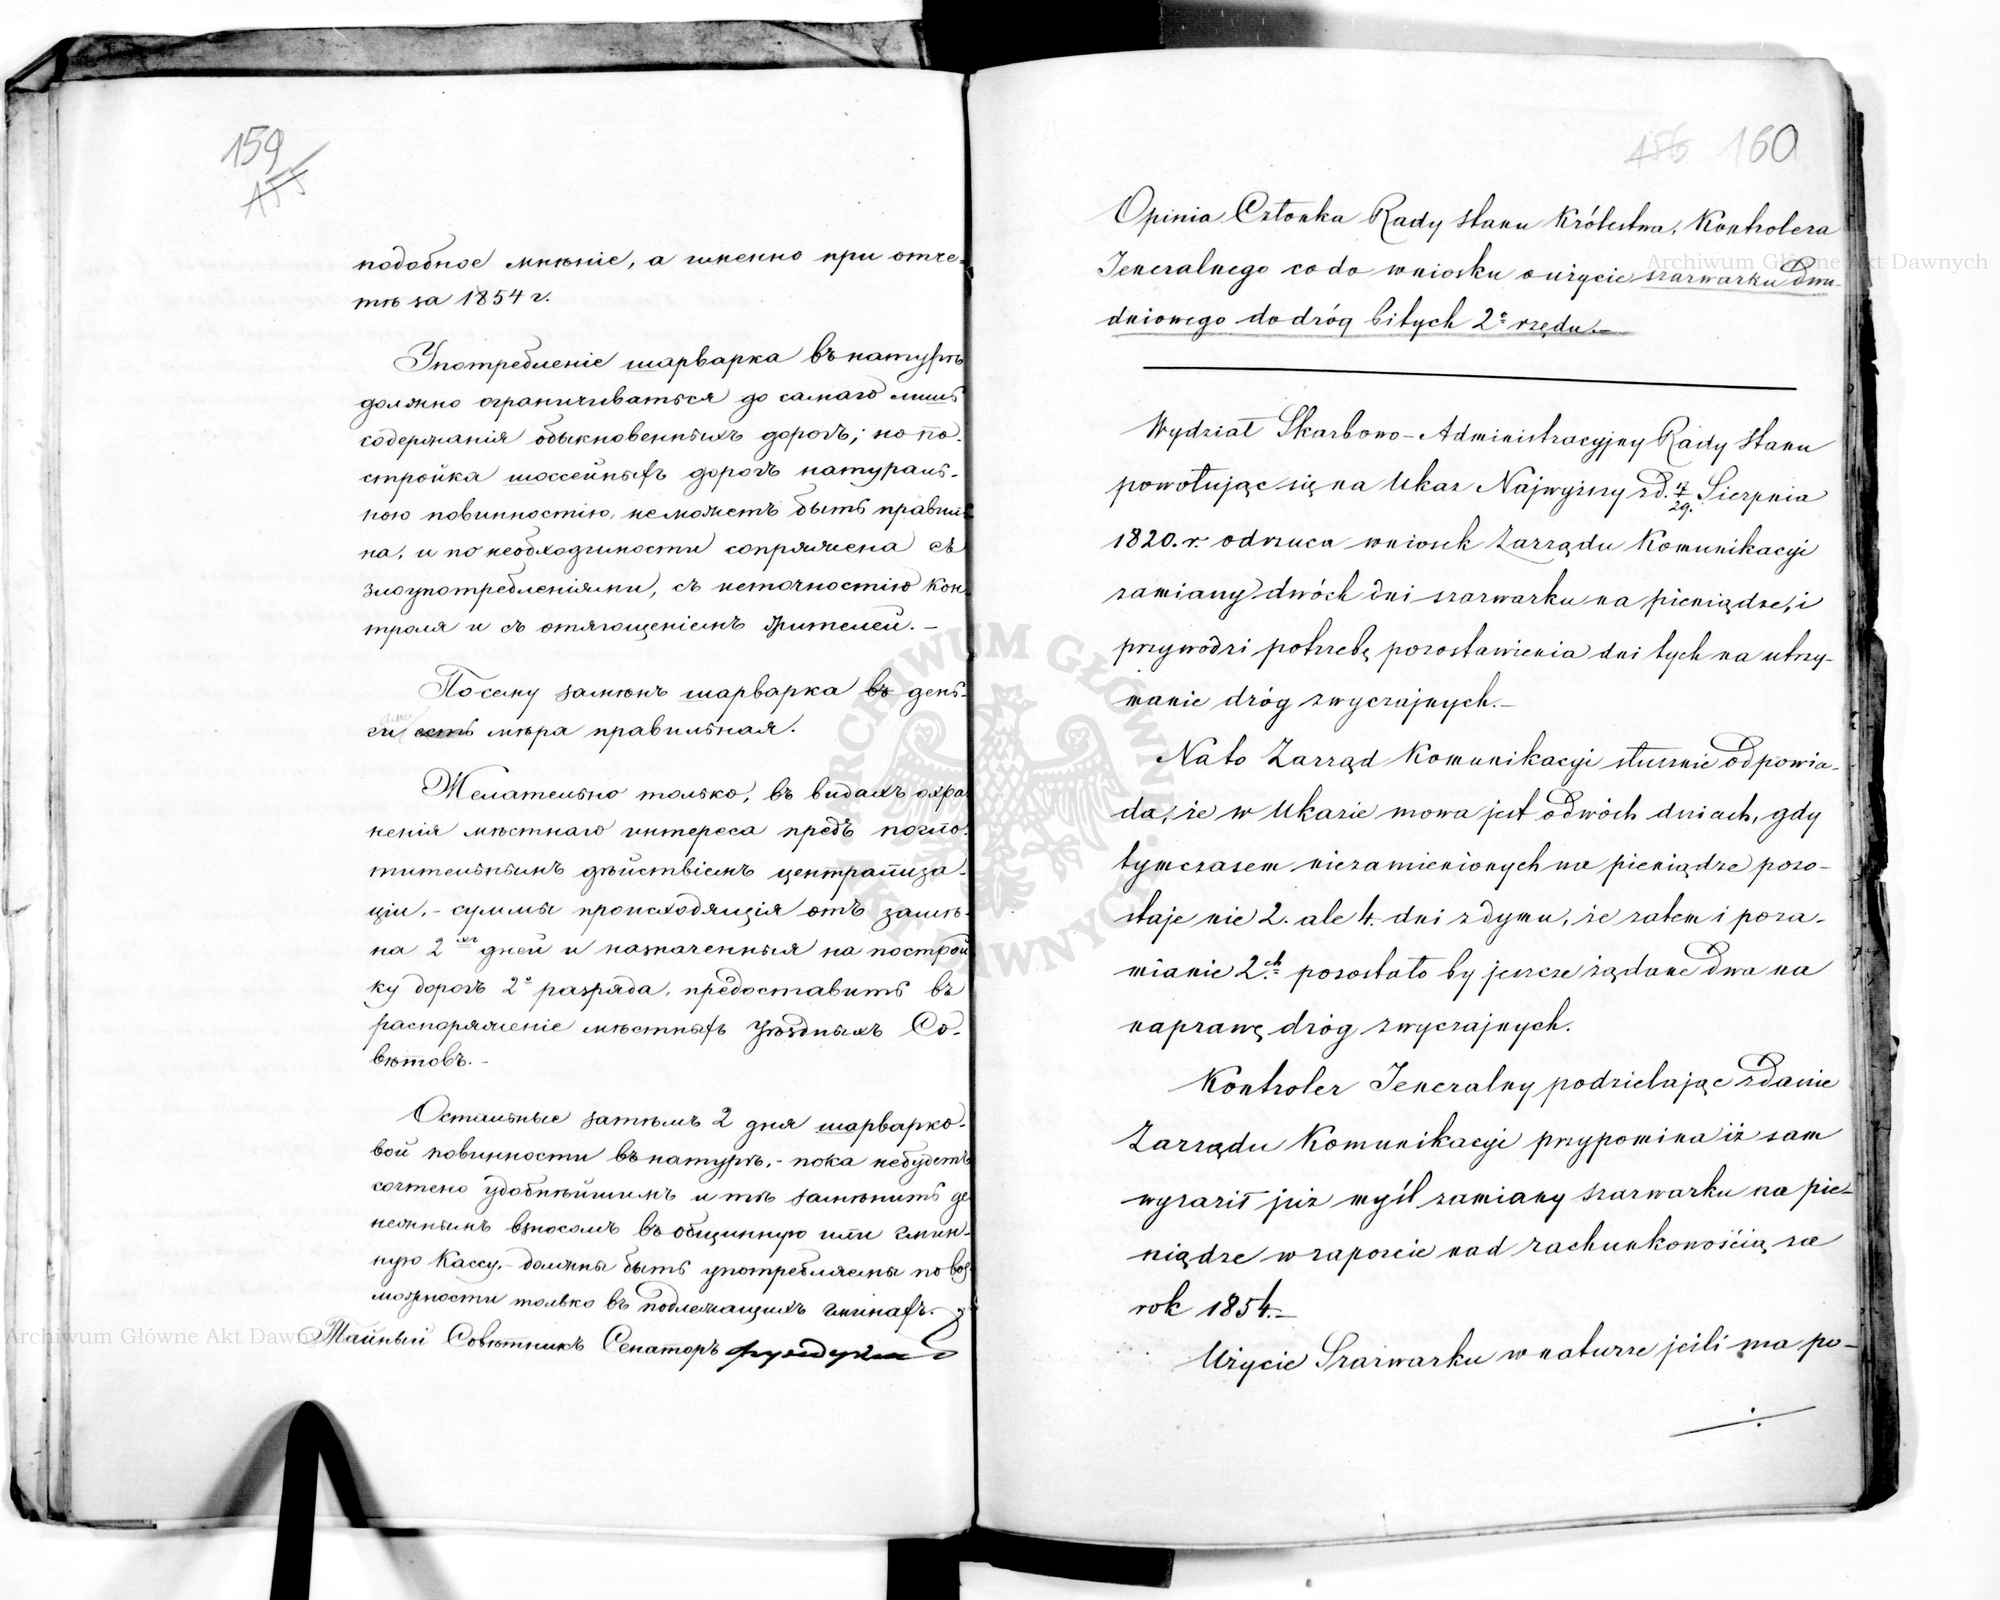 159
155
подобное мнѣніе, а именно при отче-
тѣ за 1854 г.
Употребленіе шарварка въ натурѣ
должно ограничиваться до самаго лишь
содержанія обыкновенныхъ дорогъ; но по-
стройка шоссейныхъ дорогъ натураль-
ною повинностію, неможетъ быть правиль-
на, и по необходимости сопряжена съ
злоупотребленіями, съ неточностію кон-
троля и съ отягощеніемъ жителей.—
Посему замѣнъ шарварка въ день-
ги есть мѣра правильная.
Желательно только, въ видахъ охра-
ненія мѣстнаго интереса предъ погло-
тительнымъ дѣйствіемъ централиза-
ціи,- суммы происходящія отъ замѣ-
на 2хъ дней и назначенныя на построй-
ку дорогъ 2º разряда, предоставить въ
распоряженіе мѣстныхъ Уѣздныхъ Со-
вѣтовъ.-
Остальные затѣмъ 2 дня шарварко-
вой повинности въ натурѣ,- пока небудетъ
сочтено удобнѣйшимъ и тѣ замѣнить де
нежнымъ взносомъ въ общинную или гмин-
ную кассу,- должны быть употребляемы по воз
можности только въ подлежащихъ гминахъ.
Тайный Совѣтникъ Сенаторъ Фундуклей
156 160
Opinia Członka Rady Stanu Królestwa, Kontrolera
Jeneralnego co do wniosku o użycie szarwarku Dwu-
dniowego do dróg bitych 2º rzędu.—
Wydział Skarbowo-Administracyjny Rady Stanu
powołując się na Ukaz Najwyższy z d. 17/29. Sierpnia
1820. r. odrzuca wniosek Zarządu Komunikacyi
zamiany dwóch dni szarwarku na pieniądze, i
przywodzi potrzebę pozostawienia dni tych na utrzy-
manie dróg zwyczajnych.—
Na to Zarząd Komunikacyi słusznie odpowia-
da, że w Ukazie mowa jest o dwóch dniach, gdy
tymczasem niezamienionych na pieniądze pozo-
staje nie 2. ale 4. dni z dymu, że zatem i po za-
mianie 2ch pozostało by jeszcze żądane Dwa na
naprawę dróg zwyczajnych.
Kontroler Jeneralny podzielając zdanie
Zarządu Komunikacyi przypomina iż sam
wyraził już myśl zamiany szarwarku na pie-
niądze w raporcie nad rachunkowością za
rok 1854.—
Użycie Szarwarku w naturze jeśli ma po-
Archiwum Główne Akt Dawnych
Archiwum Główne Akt Dawnych
ARCHIWUM GŁÓWNE AKT DAWNYCH